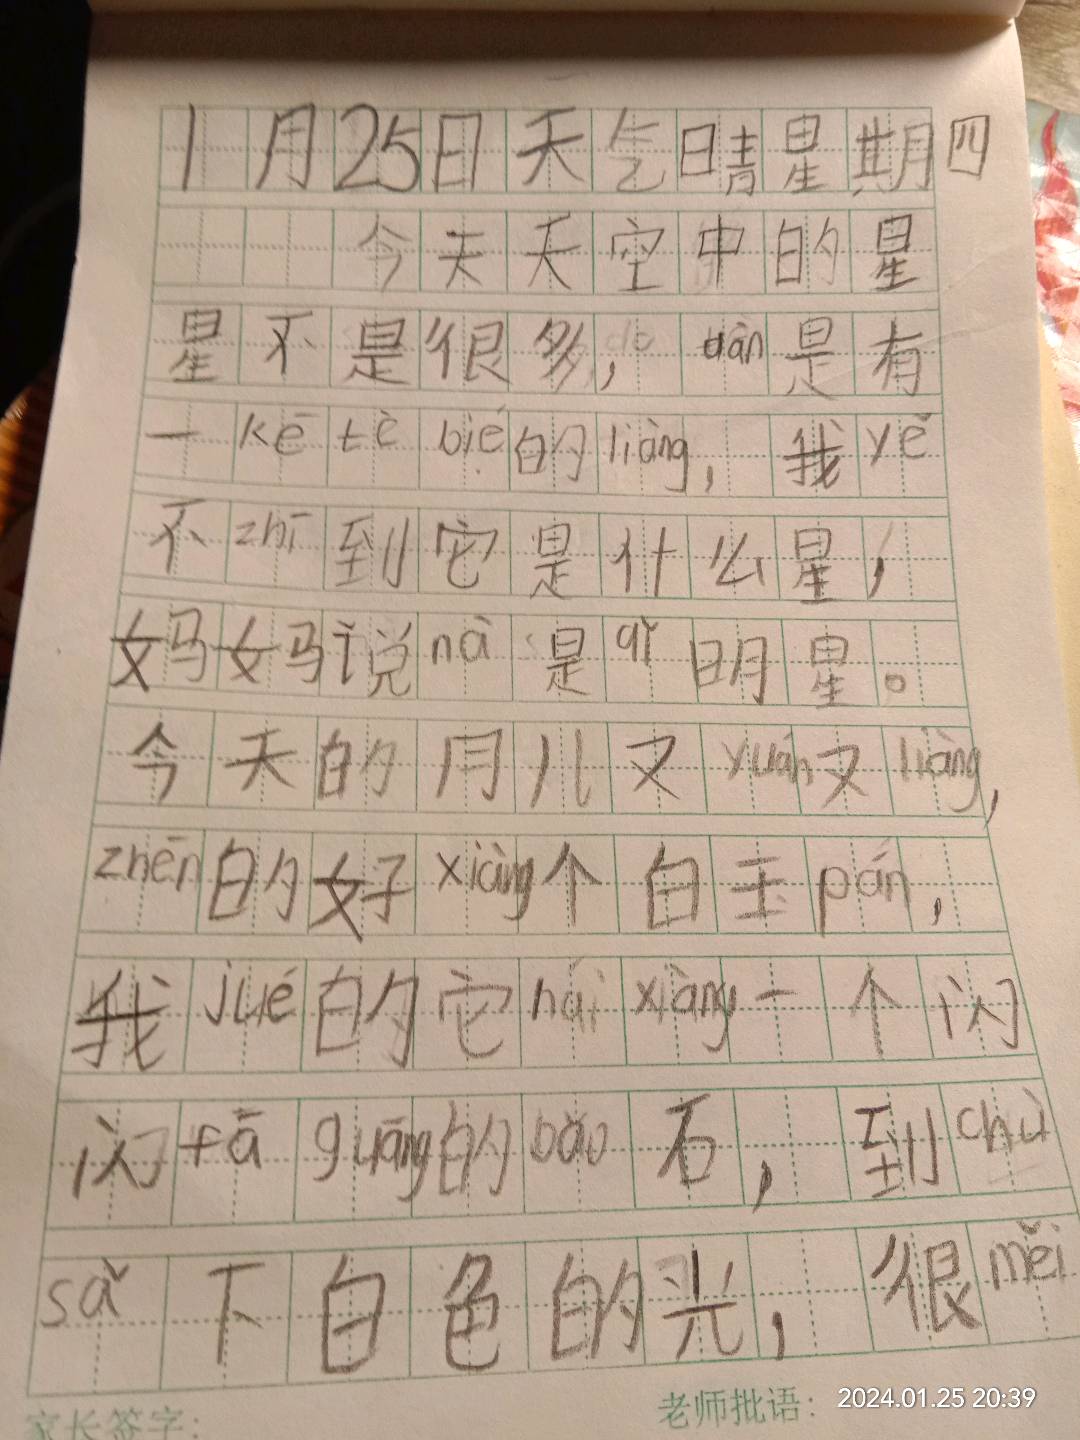 1月25日天气晴星期四
今天天空中的星
星不是很多,dàn是有
一kē tè bié的liàng,我yě
不zhī到它是什么星,
妈妈说nà是qǐ明星。
今天的月儿又yuán又liàng,
zhēn的好xiàng个白玉pán,
我jué的它hái xiàng一个闪
闪fā guāng的bǎo石,到chù
sǎ下白色的光,很měi
家长签字:
老师批语:
2024.01.25 20:39